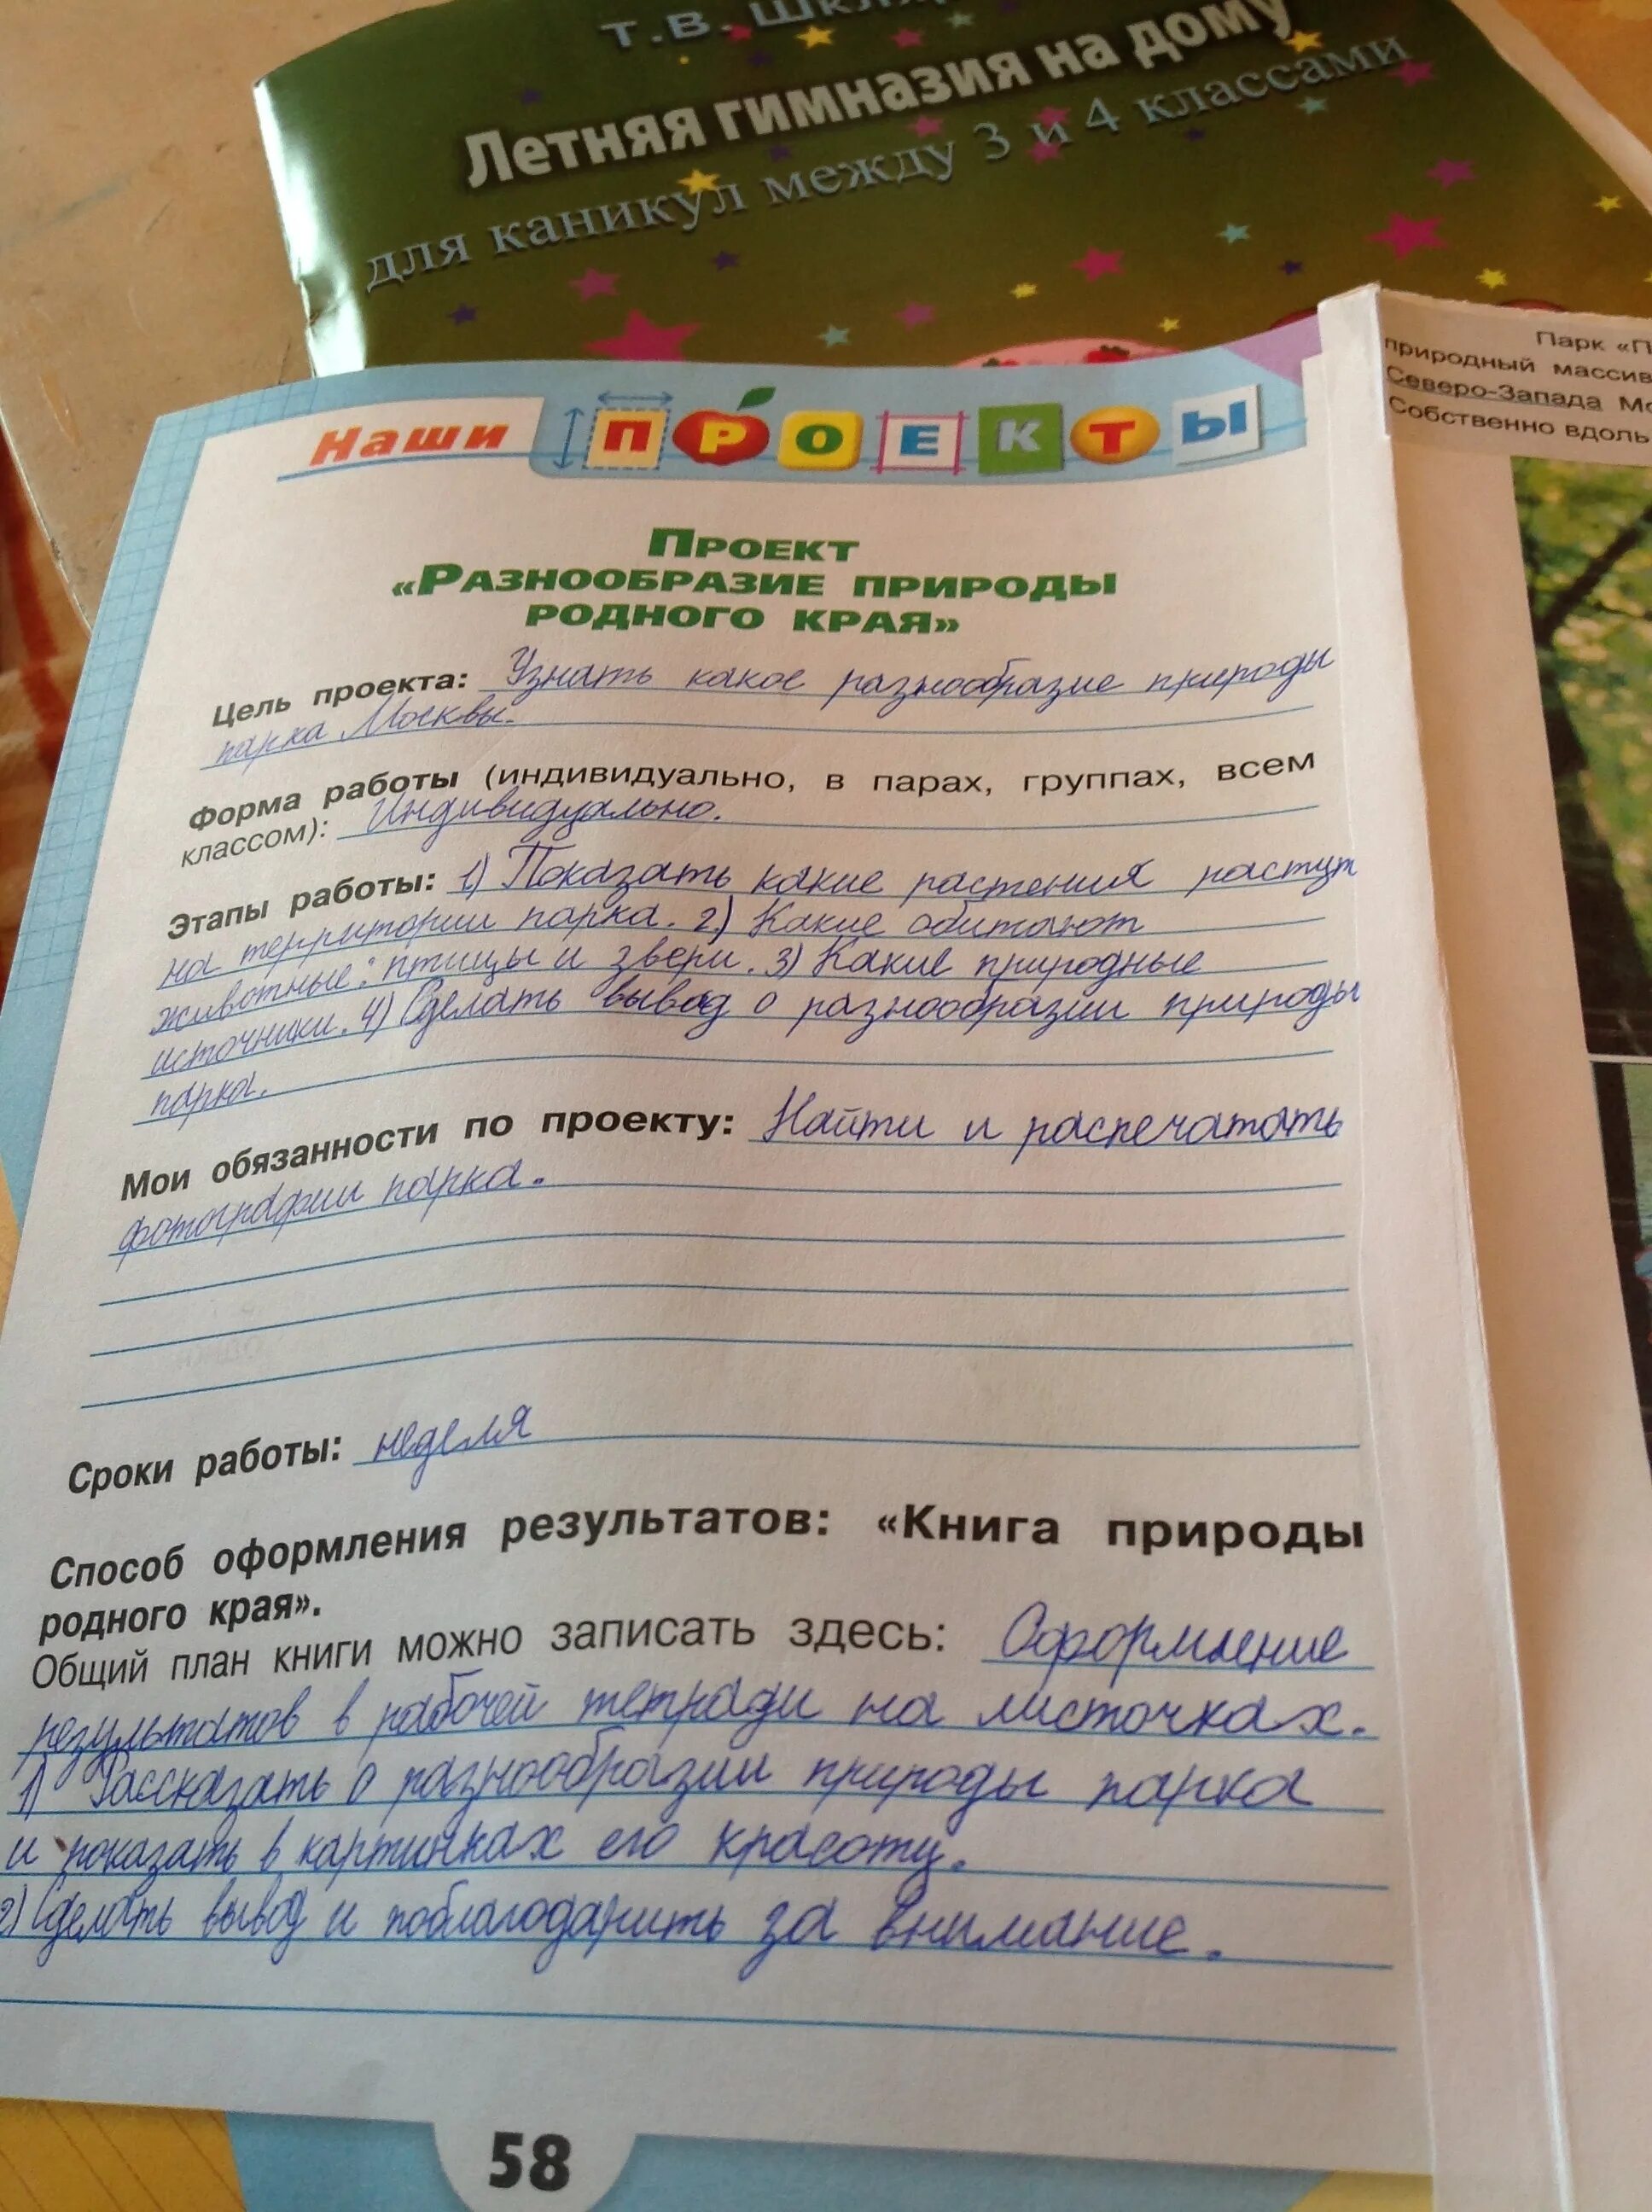 Т.В.
Летняя гимназия на дому
для каникул между 3 и 4 классами
Парк
природный массив
Северо-Запада
Собственно вдоль
Наши ПРОЕКТЫ
ПРОЕКТ
«РАЗНООБРАЗИЕ ПРИРОДЫ
РОДНОГО КРАЯ»
Цель проекта: Узнать какое разнообразие природы
парка Москвы.
Форма работы (индивидуально, в парах, группах, всем
классом): Индивидуально.
Этапы работы: 1) Показать какие растения растут
на территории парка. 2) Какие обитают
животные: птицы и звери. 3) Какие природные
источники. 4) Сделать вывод о разнообразии природы
парка.
Мои обязанности по проекту: Найти и распечатать
фотографии парка.
Сроки работы: неделя
Способ оформления результатов: «Книга природы
родного края».
Общий план книги можно записать здесь: Оформление
результатов в рабочей тетради на листочках.
1) Рассказать о разнообразии природы парка
и показать в картинках его красоту.
2) Сделать вывод и поблагодарить за внимание.
58